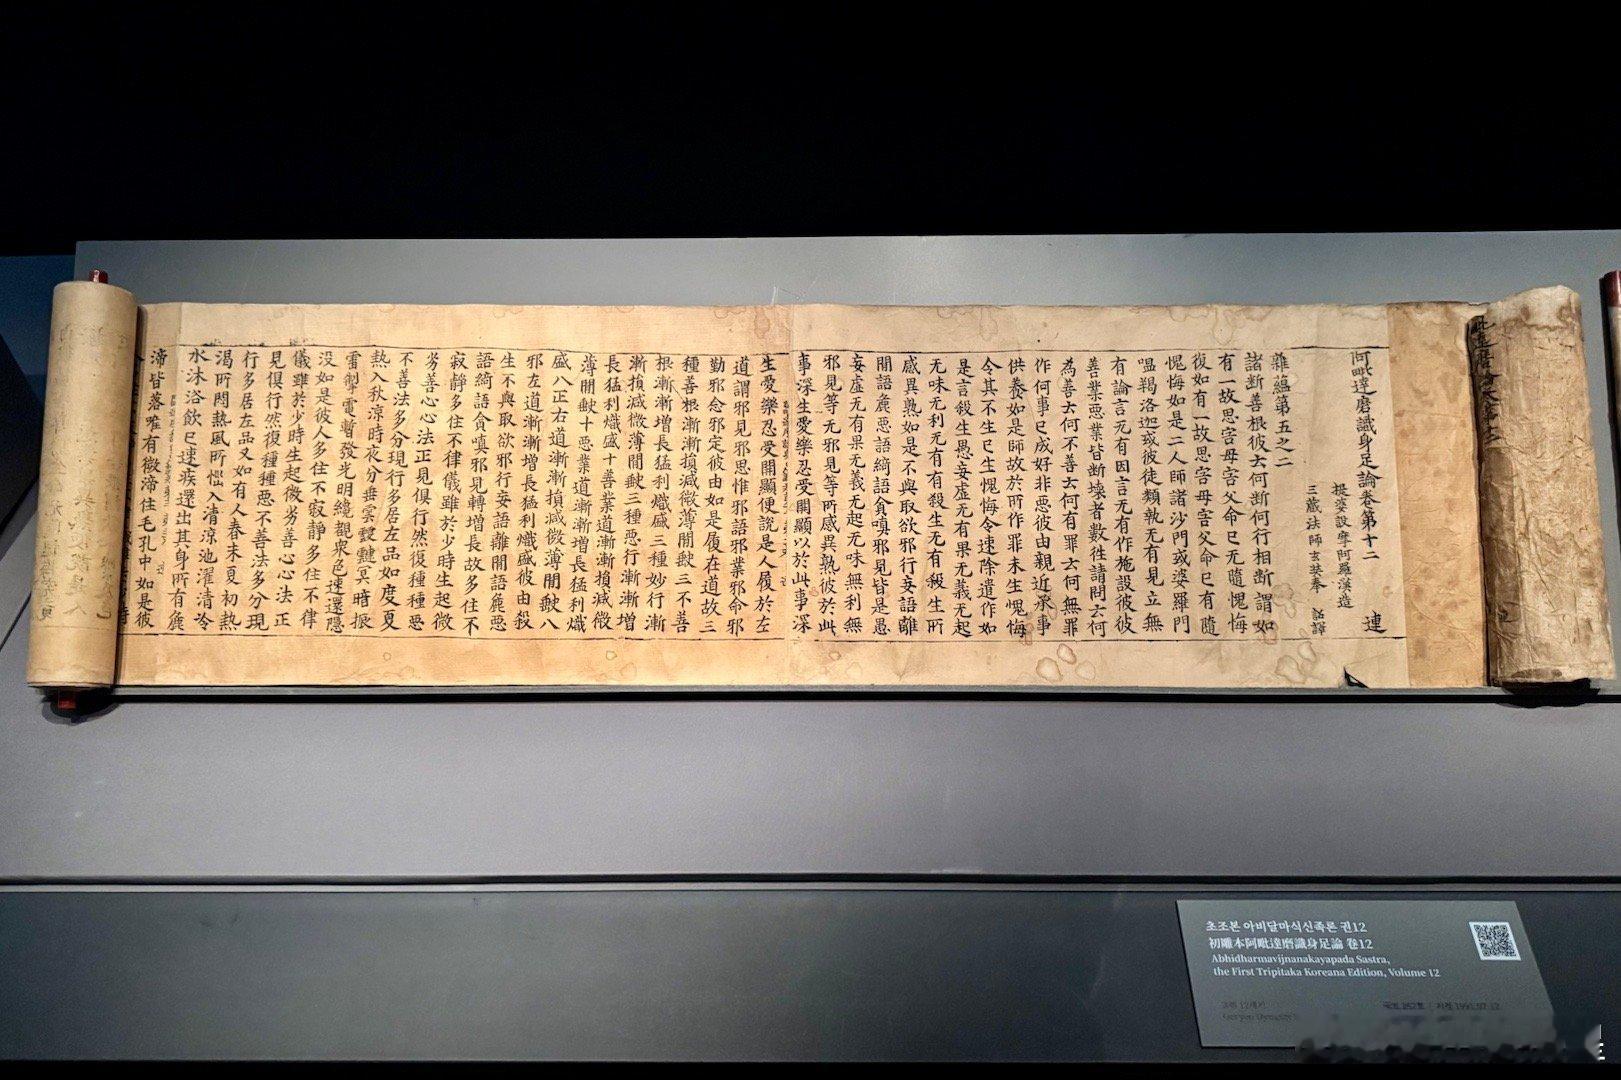 阿毗達磨識身足論卷第十二 連
提婆設摩阿羅漢造
三藏法師玄奘奉 詔譯
雜蘊第五之二
諸斷善根彼去何斷何行相斷謂如
有一故思害母害父命已无隨愧悔
復如有一故思害母害父命已有隨
愧悔如是二人師諸沙門或婆羅門
嗢羯洛迦或彼徒類執无有見立無
有論言无有因言无有作施設彼彼
善業惡業皆斷壞者數往請問去何
為善去何不善去何有罪去何無罪
作何事已成好非惡彼由親近承事
供養如是師故於所作罪未生愧悔
令其不生已生愧悔令速除遣作如
是言殺生愚妄虛无有果无義无起
无味无利无有有殺生无有殺生所
感異熟如是不與取欲邪行妄語離
間語麁惡語綺語貪嗔邪見皆是愚
妄虛无有果无義无起无味無利無
邪見等无邪見等所感異熟彼於此
事深生愛樂忍受開顯以於此事深
生愛樂忍受開顯便說是人履於左
道謂邪見邪思惟邪語邪業邪命邪
勤邪念邪定彼由如是履在道故三
種善根漸漸損減微薄開䵷三不善
根漸漸增長猛利熾盛三種妙行漸
漸損減微薄開䵷三種惡行漸漸增
長猛利熾盛十善業道漸漸損減微
薄開䵷十惡業道漸漸增長猛利熾
盛八正右道漸漸損減微薄開䵷八
邪左道漸漸增長猛利熾盛彼由殺
生不與取欲邪行妄語離間語麁惡
語綺語貪嗔邪見轉增長故多住不
寂靜多住不律儀雖於少時生起微
劣善心心法正見俱行然復種種惡
不善法多分現行多居左品如度夏
熱入秋涼時夜分垂雲靉靆冥時振
雷掣電暫發光明纔覩衆色速還隱
没如是彼人多住不寂靜多住不律
儀雖於少時生起微劣善心心法正
見俱行然復種種惡不善法多分現
行多居左品又如有人春末夏初熱
渴所悶熱風所惱入清涼池濯清冷
水沐浴飲已速疾還出其身所有麁
渧皆落唯有微渧住毛孔中如是彼
초조본 아비달마식신족론 권12
初雕本阿毗達磨識身足論 卷12
Abhidharmavijnanakayapada Sastra,
the First Tripitaka Koreana Edition, Volume 12
고려 12세기